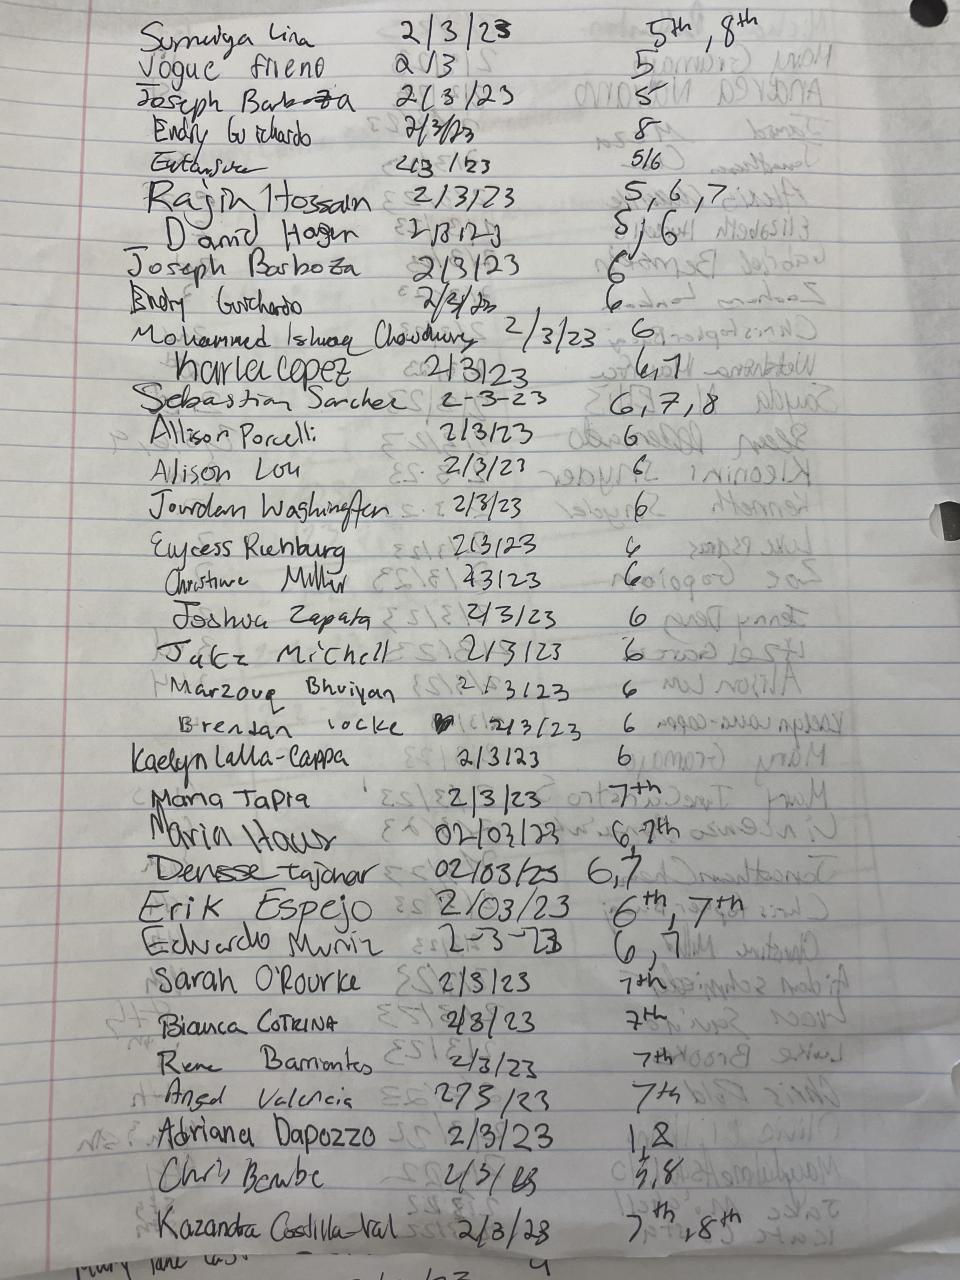 Sumaiya Lina 2/3/23 5th, 8th
Vogue Friend 2/3 5
Joseph Barboza 2/3/23 5
Endry Guichardo 2/3/23 8
2/3/23 5/6
Rajin Hossain 2/3/23 5, 6, 7
David Hagen 2/3/23 5, 6
Joseph Barboza 2/3/23 6
Endry Guichardo 2/3/23 6
Mohammed Ishnaq Chowdhury 2/3/23 6
Karla Lopez 2/3/23 6,7
Sebastian Sanchez 2-3-23 6, 7, 8
Allison Porcelli 2/3/23 6
Alison Lou 2/3/23 6
Jourdan Washington 2/3/23 6
Richburg 2/3/23 6
Christine Miller 2/3/23 6
Joshua Zapata 2/3/23 6
Jake Mitchell 2/3/23 6
Marzouq Bhuiyan 2/3/23 6
Brendan Locke 2/3/23 6
Kaelyn Lalla-Cappa 2/3/23 6
Maria Tapia 2/3/23 7th
Maria 02/03/23 6,7th
Denisse 02/03/23 6,7
Erik Espejo 2/03/23 6th, 7th
Eduardo Muniz 2-3-23 6, 7
Sarah O'Rourke 2/3/23 7th
Bianca COTRINA 2/3/23 7th
Rene Barrientos 2/3/23 7th
Angel Valencia 2/3/23 7th
Adriana Dapozzo 2/3/23 1,8
Chris Bembe 2/3/23
Kazandra 2/3/23 7th, 8th
Mary Jane